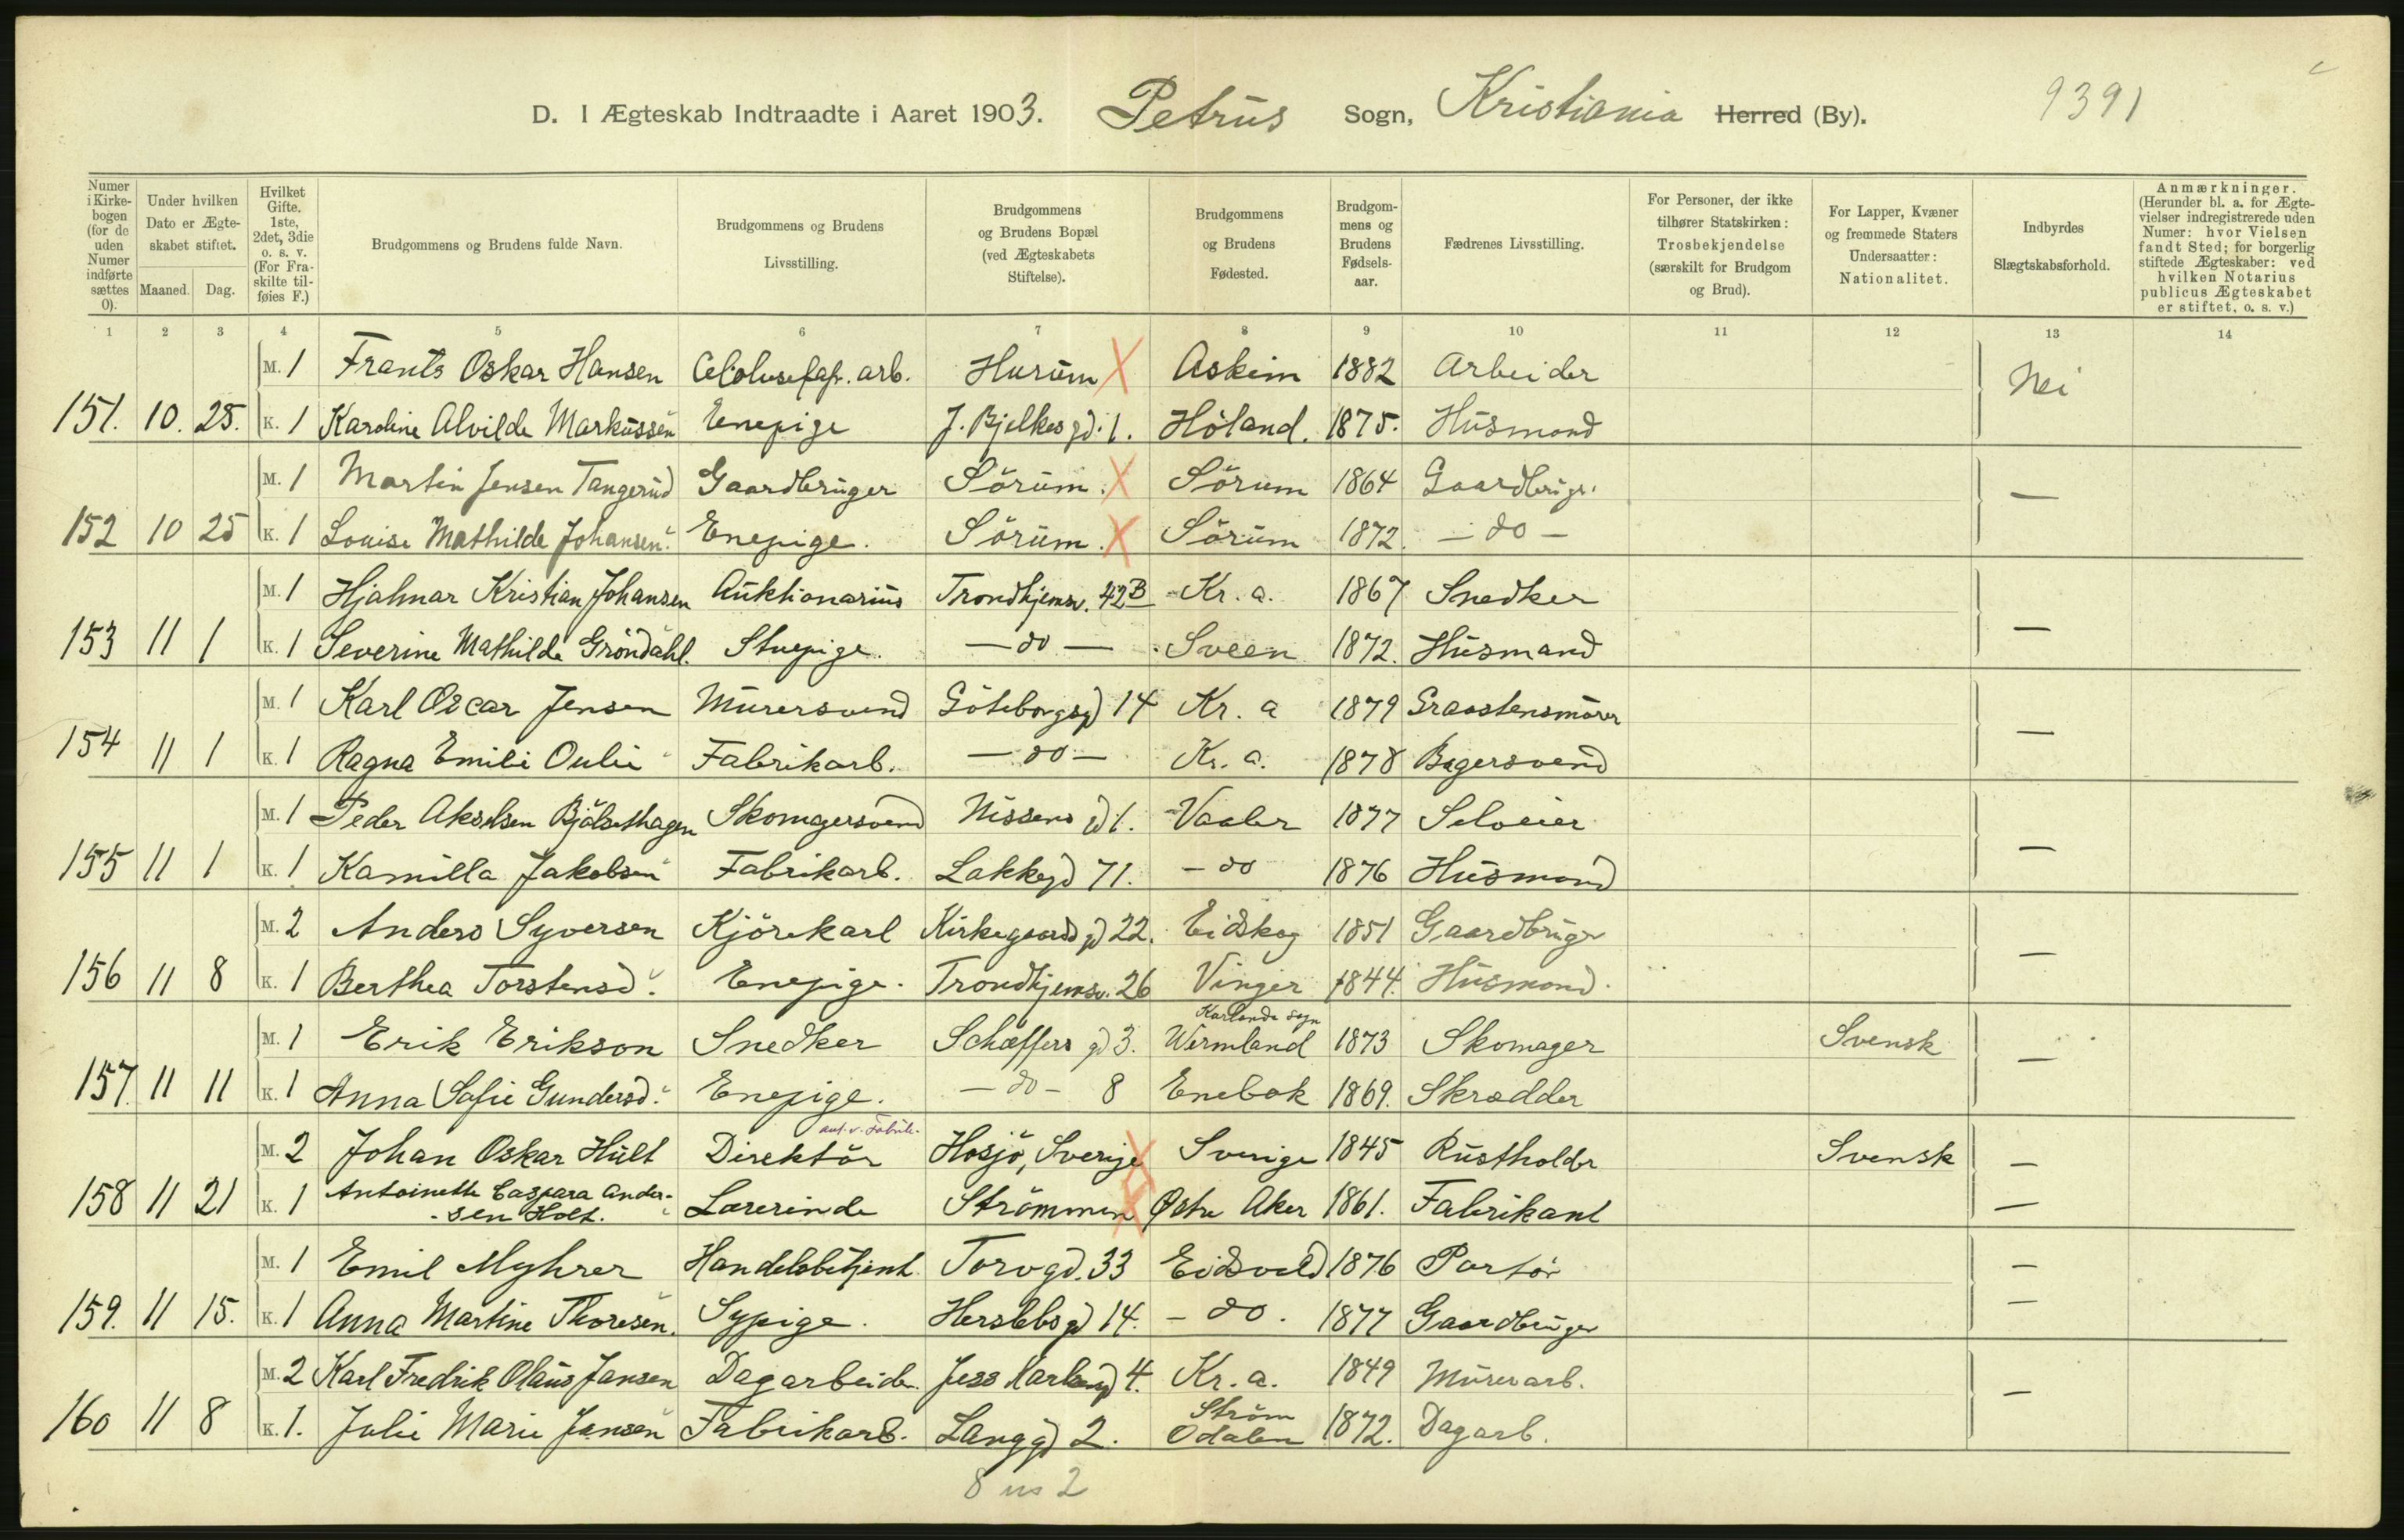 9391
D. I Ægteskab Indtraadte i Aaret 1903. Petrus Sogn, Kristiania Herred (By).
Numer i Kirkebogen (for de uden Numer indførte sættes 0).
Under hvilken Dato er Ægteskabet stiftet.
Maaned. Dag.
Hvilket Gifte. 1ste, 2det, 3die o. s. v. (For Fraskilte tilføies F.)
Brudgommens og Brudens fulde Navn.
Brudgommens og Brudens Livsstilling.
Brudgommens og Brudens Bopæl (ved Ægteskabets Stiftelse).
Brudgommens og Brudens Fødested.
Brudgommens og Brudens Fødselsaar.
Fædrenes Livsstilling.
For Personer, der ikke tilhører Statskirken: Trosbekjendelse (særskilt for Brudgom og Brud).
For Lapper, Kvæner og fremmede Staters Undersaatter: Nationalitet.
Indbyrdes Slægtskabsforhold.
Anmærkninger. (Herunder bl. a. for Ægtevielser indregistrerede uden Numer: hvor Vielsen fandt Sted; for borgerlig stiftede Ægteskaber: ved hvilken Notarius publicus Ægteskabet er stiftet, o. s. v.)
1 2 3 4 5 6 7 8 9 10 11 12 13 14
M. 1 Frants Oskar Hansen arb. Hurum X Askim 1882 Arbeider Nei
151. 10. 25. K. 1 Karoline Alvilde Markussen Enepige J. Bjelkes gd. 1. Höland. 1875. Husmand
M. 1 Martin Jensen Tangerud Gaardbruger Sörum. X Sörum 1864 Gaardbrugr. —
152 10 25 K. 1 Louise Mathilde Johansen. Enepige. Sörum. X Sörum 1872. — do —
M. 1 Hjalmar Kristian Johansen Auktionarius Trondhjemsv. 42B Kr. a. 1867 Snedker —
153 11 1 K. 1 Severine Mathilde Gröndahl. Stuepige. — do — Sveen 1872. Husmand
M. 1 Karl Oscar Jensen Murersvend Göteborgsgd 14 Kr. a 1879 Graastensmurer —
154 11 1 K. 1 Ragna Emilie Oulie Fabrikarb. — do — Kr. a. 1878 Bagersvend
M. 1 Peder Akselsen Bjölsethagen Skomagersvend Nissens gd 1. Vaaler 1877 Selveier —
155 11 1 K. 1 Kamilla Jakobsen Fabrikarb. Lakkegd 71. — do 1876 Husmand
M. 2 Anders Syversen Kjörekarl Kirkegaards gd 22. Eidskog 1851 Gaardbruger —
156 11 8 K. 1 Berthea Torstensd. Enepige. Trondhjemsv. 26 Vinger 1844. Husmand.
Karlanda sogn
M. 1 Erik Erikson Snedker Schæffers gd 3. Wermland 1873 Skomager Svensk —
157. 11 11 K. 1 Anna Sofie Gundersd. Enepige. — do — 8 Enebak 1869. Skrædder
M. 2 Johan Oskar Hult Direktör Hosjö, Sverige X Sverige 1845 Rustholder Svensk —
158 11 21 K. 1 Antoinette Caspara Ander-
-sen Holt. Lærerinde Strömmen X Östre Aker 1861. Fabrikant —
M. 1 Emil Myhrer Handelsbetjent Torvgd. 33 Eidsvold 1876 Portör —
159. 11 15. K. 1 Anna Martine Thoresen. Sypige. Herslebs gd 14. — do. 1877 Gaardbruger —
M. 2 Karl Fredrik Olaus Jansen Dagarbeider. Jess Karlsengd 4. Kr. a. 1849 Murerarb. —
160 11 8 K. 1. Julie Marie Jansen Fabrikarb. Langgd 2. Ström Odalen 1872. Dagarb.
8 us 2